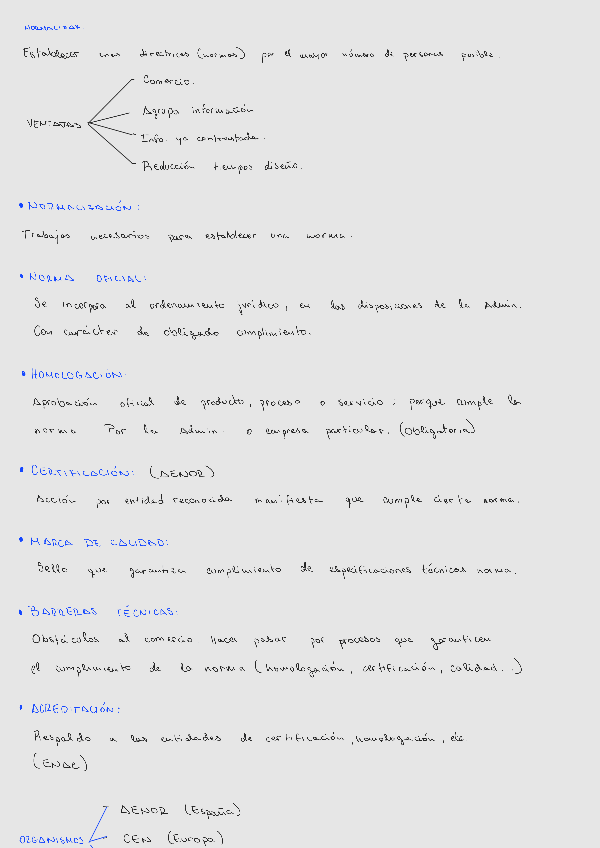 NORMALIZAR
Establecer unas directrices (normas) por el mayor número de personas posible.
Comercio.
Agrupa información
VENTAJAS
Info. ya contrastada.
Reducción tiempos diseño.
• NORMALIZACIÓN:
Trabajos necesarios para establecer una norma.
• NORMA OFICIAL:
Se incorpora al ordenamiento jurídico, en las disposiciones de la Admin.
Con carácter de obligado cumplimiento.
• HOMOLOGACIÓN:
Aprobación oficial de producto, proceso o servicio; porque cumple la
norma Por la Admin. o empresa particular. (Obligatoria)
• CERTIFICACIÓN: (AENOR)
Acción por entidad reconocida manifiesta que cumple cierta norma.
• MARCA DE CALIDAD:
Sello que garantiza cumplimiento de especificaciones técnicas norma.
• BARRERAS TÉCNICAS:
Obstáculos al comercio Hacer pasar por procesos que garanticen
el cumplimiento de la norma (homologación, certificación, calidad...)
• ACREDITACIÓN:
Respaldo a las entidades de certificación, homologación, etc
(ENAC)
AENOR (España)
ORGANISMOS CEN (Europa)